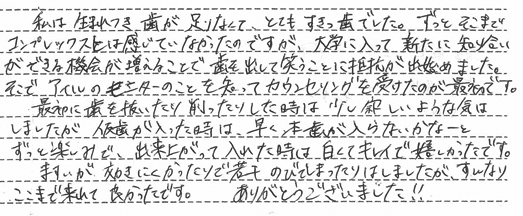 私は生まれつき歯が足りなくて、とてもすきっ歯でした。ずっとそこまで
コンプレックスとは感じていなかったのですが、大学に入って新たに知り合い
ができる機会が増えることで歯を出して笑うことに抵抗が出始めました。
そこでアイルのモニターのことを知ってカウンセリングを受けたのが最初です。
最初に歯を抜いたり削ったりした時は少し寂しいような気は
しましたが、仮歯が入った時は、早く本歯が入らないかなーと
ずっと楽しみで、出来上がって入れた時は白くてキレイで嬉しかったです。
ますいが効きにくかったりで若干のびてしまったりはしましたが、すんなり
ここまで来れて良かったです。 ありがとうございました!!